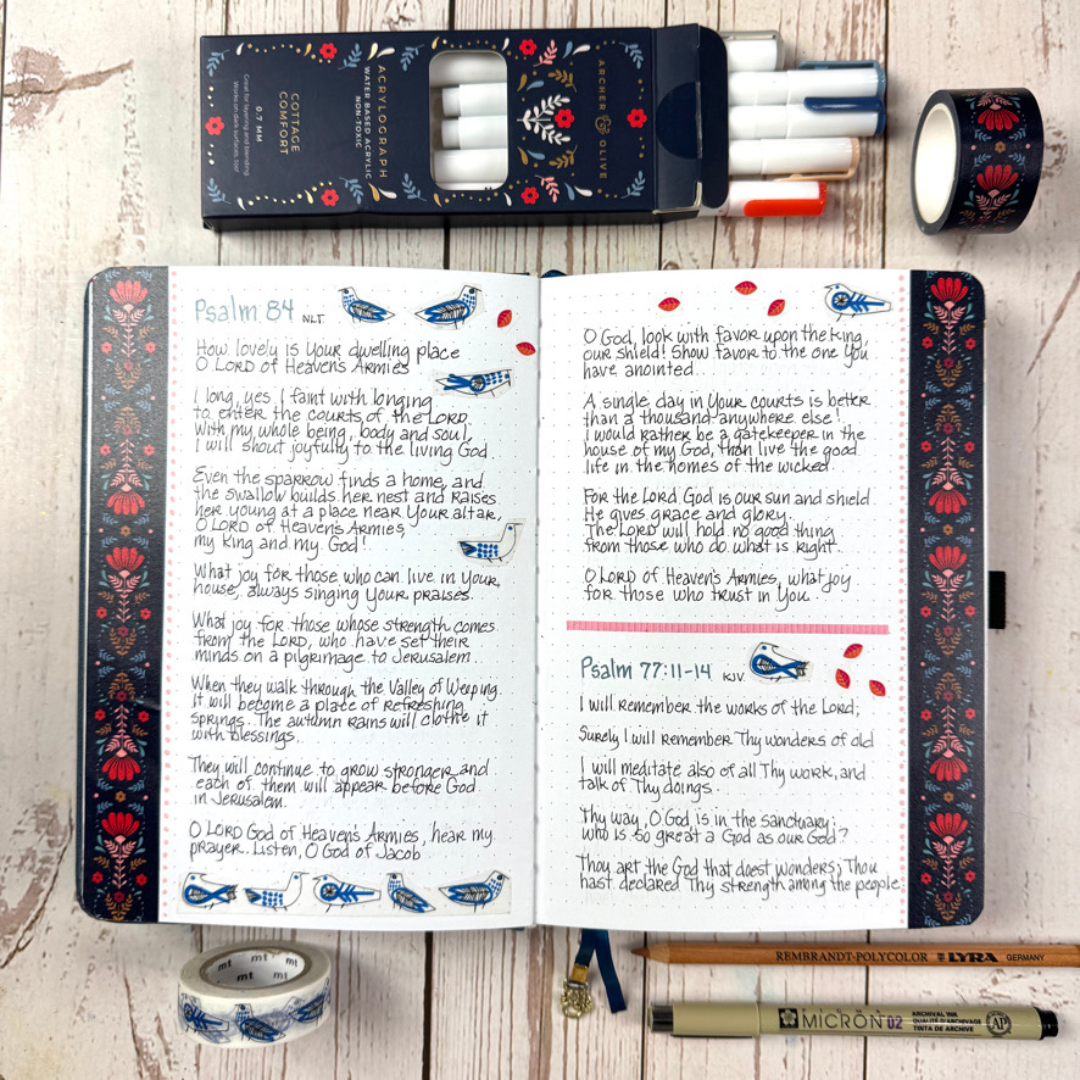 COTTAGE
COMFORT
0.7 MM
Great for layering and blending
Works on dark surfaces, too!
ACRYLOGRAPH
WATER BASED ACRYLIC
NON-TOXIC
ARCHER & OLIVE
Psalm 84 NLT.
How lovely is Your dwelling place
O LORD of Heaven's Armies
I long, yes I faint with longing
to enter the courts of the LORD
With my whole being, body and soul,
I will shout joyfully to the living God.
Even the sparrow finds a home, and
the swallow builds her nest and raises
her young at a place near Your altar,
O LORD of Heaven's Armies,
my King and my God!
What joy for those who can live in Your
house, always singing Your praises.
What joy for those whose strength comes
from the LORD, who have set their
minds on a pilgrimage to Jerusalem.
When they walk through the Valley of Weeping
it will become a place of refreshing
springs. The autumn rains will clothe it
with blessings.
They will continue to grow stronger and
each of them will appear before God
in Jerusalem.
O LORD God of Heaven's Armies, hear my
prayer. Listen, O God of Jacob
O God, look with favor upon the king,
our shield! Show favor to the one You
have anointed.
A single day in Your courts is better
than a thousand anywhere else!
I would rather be a gatekeeper in the
house of my God, than live the good
life in the homes of the wicked.
For the LORD God is our sun and shield
He gives grace and glory.
The LORD will hold no good thing
from those who do what is right.
O LORD of Heaven's Armies, what joy
for those who trust in You.
Psalm 77:11-14 KJV.
I will remember the works of the LORD;
Surely I will remember Thy wonders of old
I will meditate also of all Thy work, and
talk of Thy doings.
Thy way, O God is in the sanctuary:
who is so great a God as our God?
Thou art the God that doest wonders; Thou
hast declared Thy strength among the people.
mt mt mt mt mt
REMBRANDT-POLYCOLOR LYRA GERMANY
MICRON 02
ARCHIVAL INK
QUALITÉ D'ARCHIVAGE
TINTA DE ARCHIVE
AP